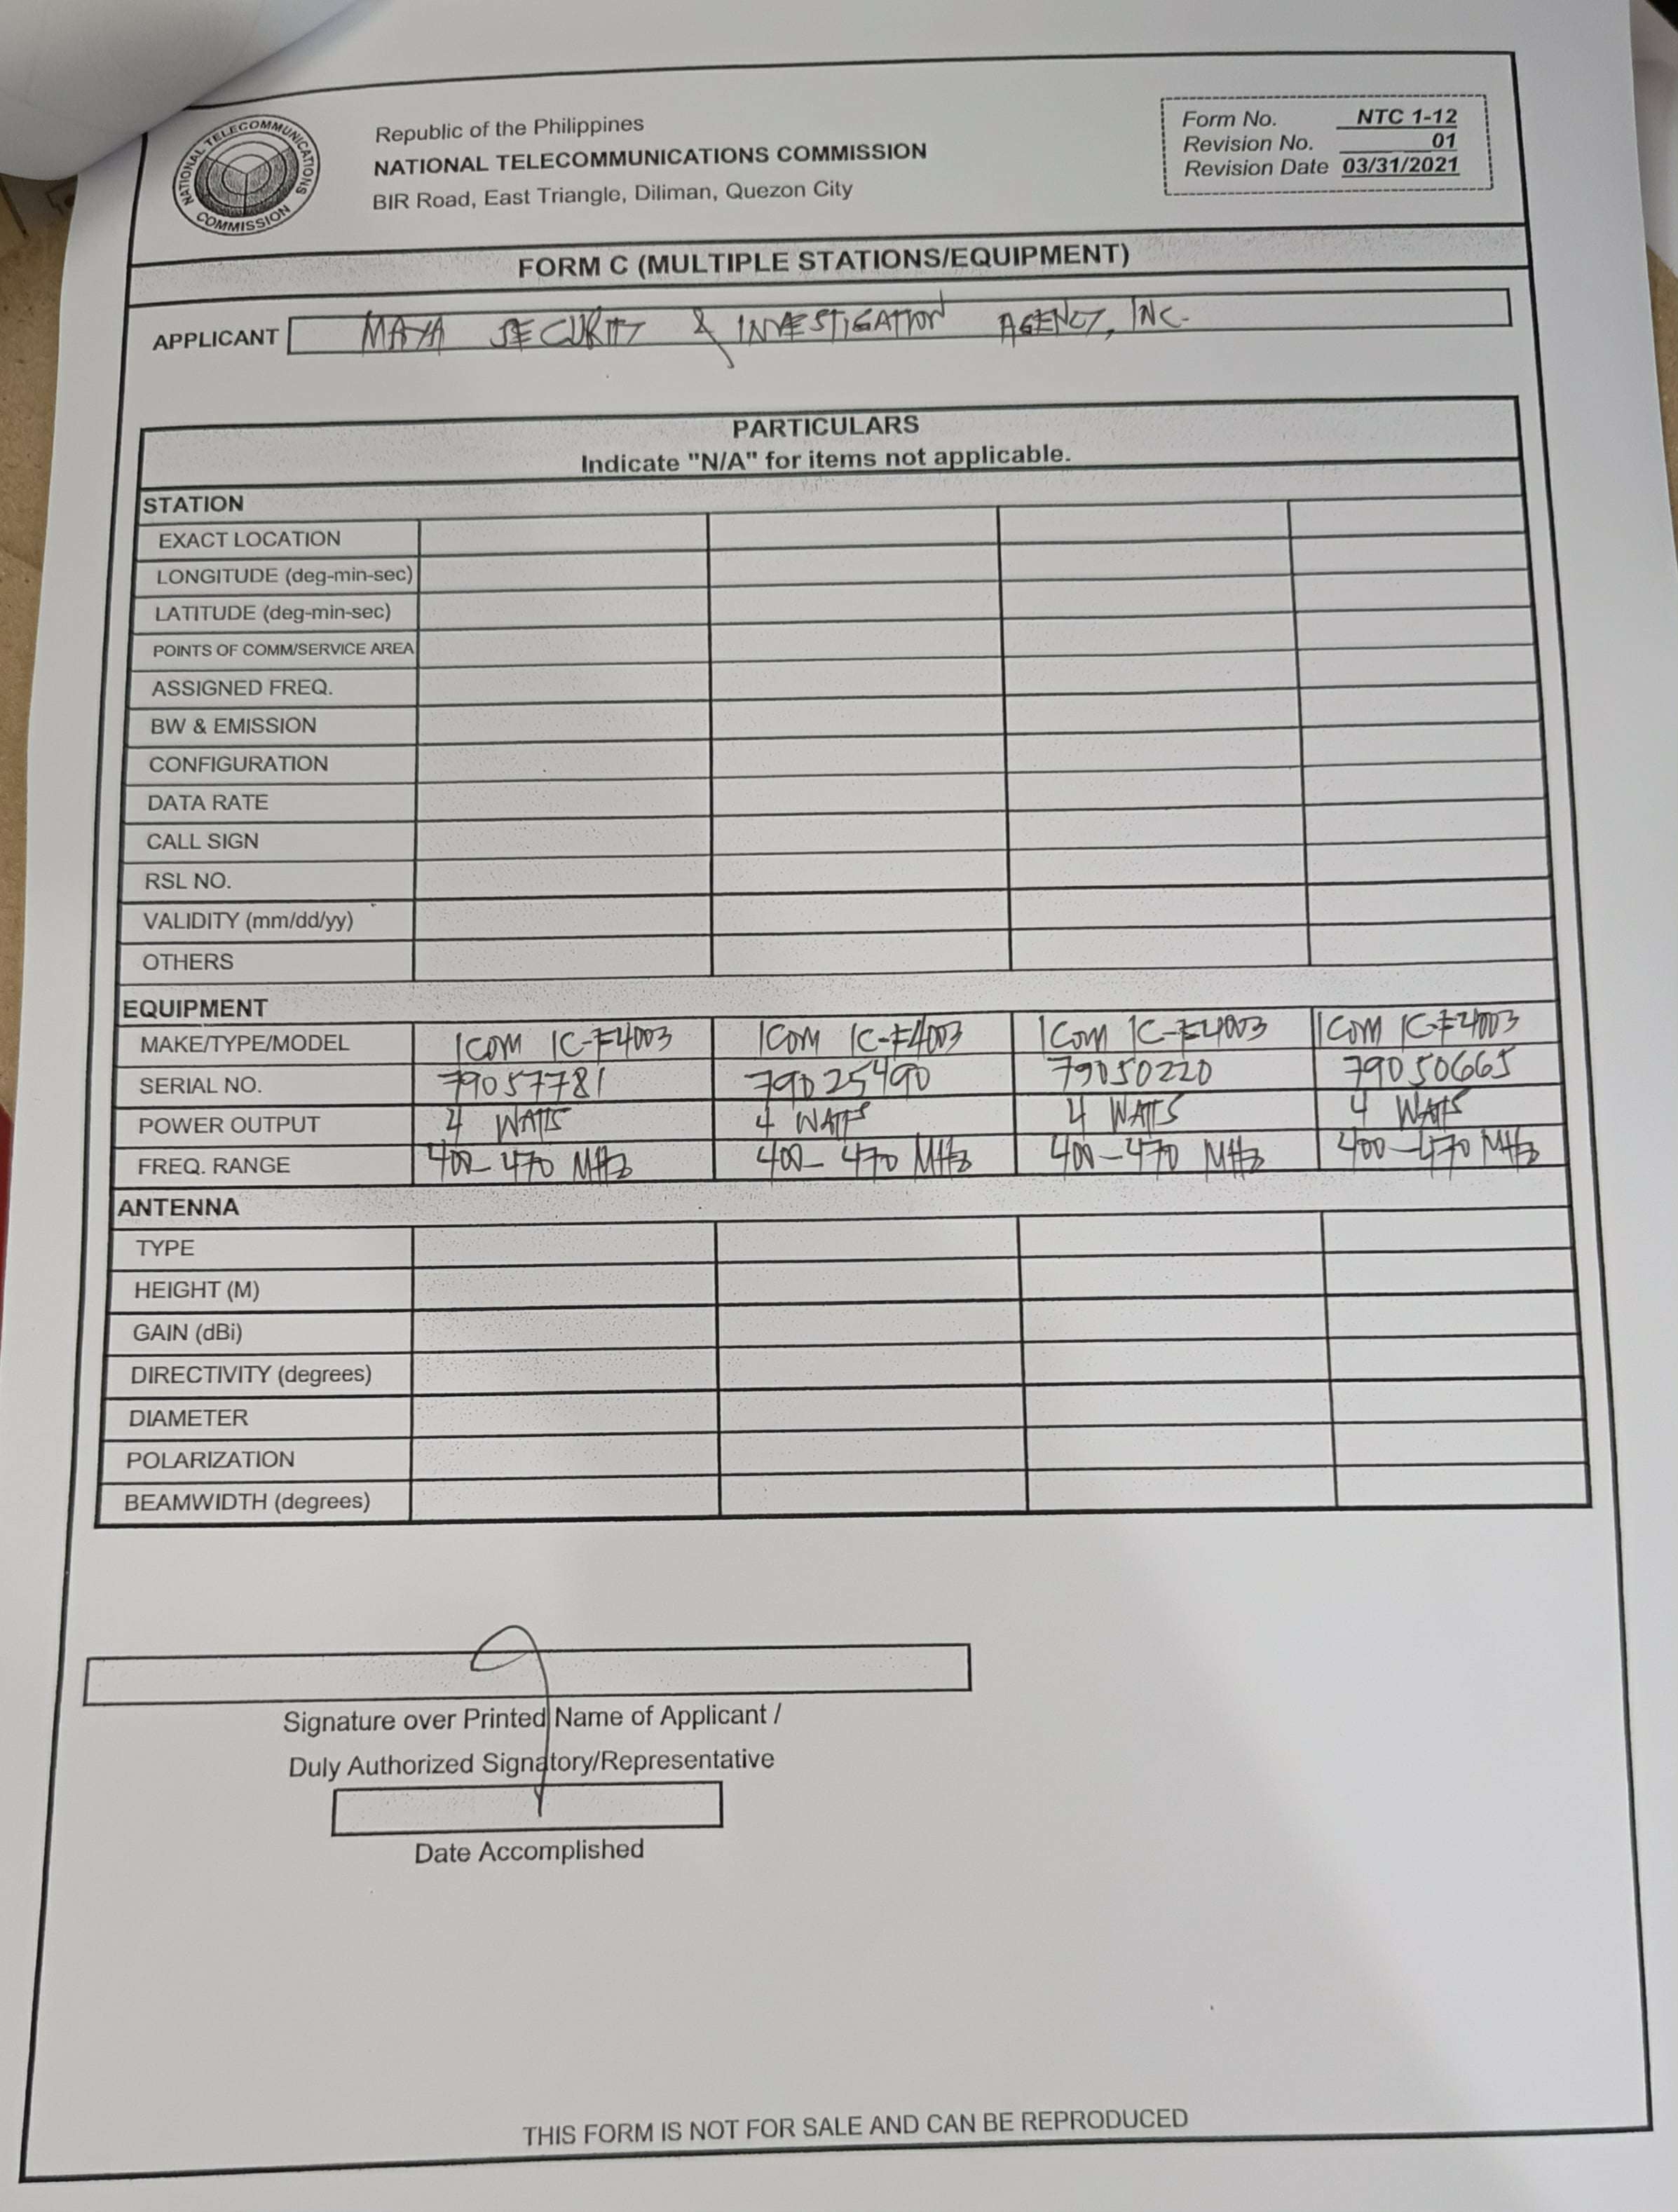 NATIONAL TELECOMMUNICATIONS COMMISSION
Republic of the Philippines
NATIONAL TELECOMMUNICATIONS COMMISSION
BIR Road, East Triangle, Diliman, Quezon City
Form No. NTC 1-12
Revision No. 01
Revision Date 03/31/2021
FORM C (MULTIPLE STATIONS/EQUIPMENT)
APPLICANT MAYA SECURITY & INVESTIGATION AGENCY, INC.
PARTICULARS
Indicate "N/A" for items not applicable.
STATION
EXACT LOCATION
LONGITUDE (deg-min-sec)
LATITUDE (deg-min-sec)
POINTS OF COMM/SERVICE AREA
ASSIGNED FREQ.
BW & EMISSION
CONFIGURATION
DATA RATE
CALL SIGN
RSL NO.
VALIDITY (mm/dd/yy)
OTHERS
EQUIPMENT
MAKE/TYPE/MODEL ICOM IC-F4003 ICOM IC-F4003 ICOM IC-F4003 ICOM IC-F4003
SERIAL NO. 79057781 79025490 79050220 79050665
POWER OUTPUT 4 WATTS 4 WATTS 4 WATTS 4 WATTS
FREQ. RANGE 400-470 MHz 400-470 MHz 400-470 MHz 400-470 MHz
ANTENNA
TYPE
HEIGHT (M)
GAIN (dBi)
DIRECTIVITY (degrees)
DIAMETER
POLARIZATION
BEAMWIDTH (degrees)
Signature over Printed Name of Applicant /
Duly Authorized Signatory/Representative
Date Accomplished
THIS FORM IS NOT FOR SALE AND CAN BE REPRODUCED